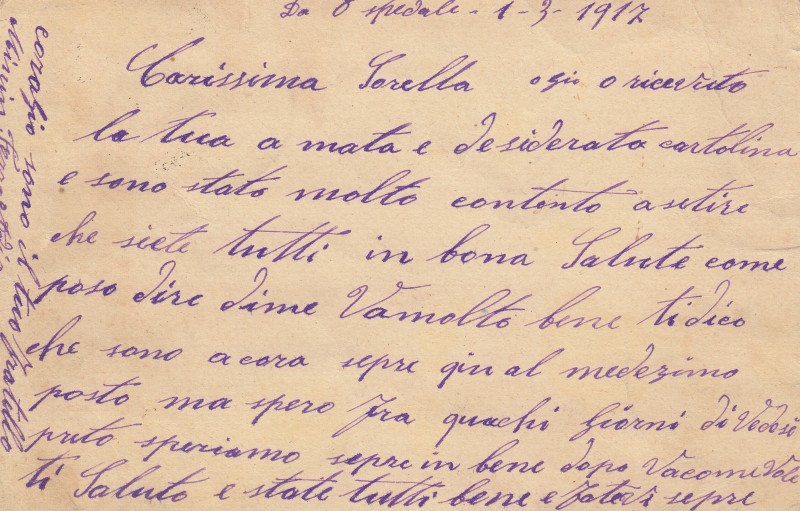 Da O spedale - 1-3-1917
Carissima Sorella ogio o ricevuto
la tua a mata e desiderata cartolina
e sono stato molto contento asetire
che siete tutti in bona Salute come
poso dire dime Vamolto bene ti dico
che sono acora sepre qui al medezimo
posto ma spero fra quachi Giorni di Vedosi
preto speriamo sepre in bene dopo Vacome Vole
ti Saluto e state tutti bene e fatevi sepre
coragio sono il tuo fratello